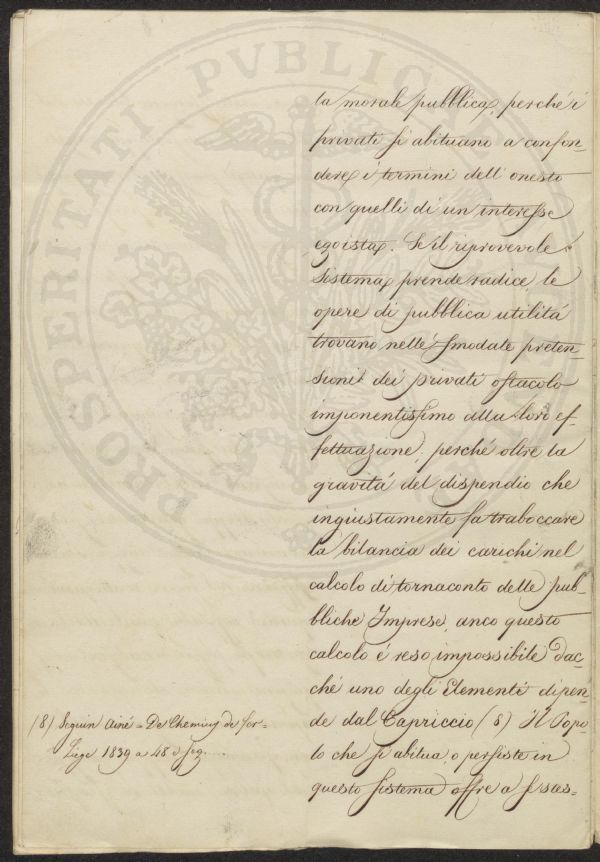 PROSPERITATI PVBLICAE
la morale pubblica, perché i
privati si abituano a confon-
dere i termini dell'onesto
con quelli di un interesse
egoista. Se il riprovevole
sistema prende radice, le
opere di pubblica utilitá
trovano nelle smodate preten-
sioni dei privati ostacolo
imponentissimo alla loro ef-
fettuazione, perché oltre la
gravitá del dispendio che
ingiustamente fa traboccare
la bilancia dei carichi nel
calcolo di tornaconto delle pub-
bliche Imprese, anco questo
calcolo é reso impossibile dac-
ché uno degli Elementi dipen-
de dal Capriccio (8) Il Popo-
lo che si abitua, o persiste in
questo sistema offre a se stes-
(8) Seguin Ainé = De Chemins de fer =
Liege 1839 a 48 e seg.